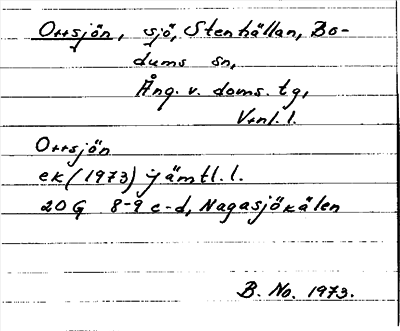 Orrsjön, sjö, Stenhällan, Bo-
dums sn,
Ång. v. doms. tg,
Vrnl. l.
Orrsjön
ek (1973) jämtl. l.
20 G 8-9 c-d, Nagasjökälen
B. No. 1973.